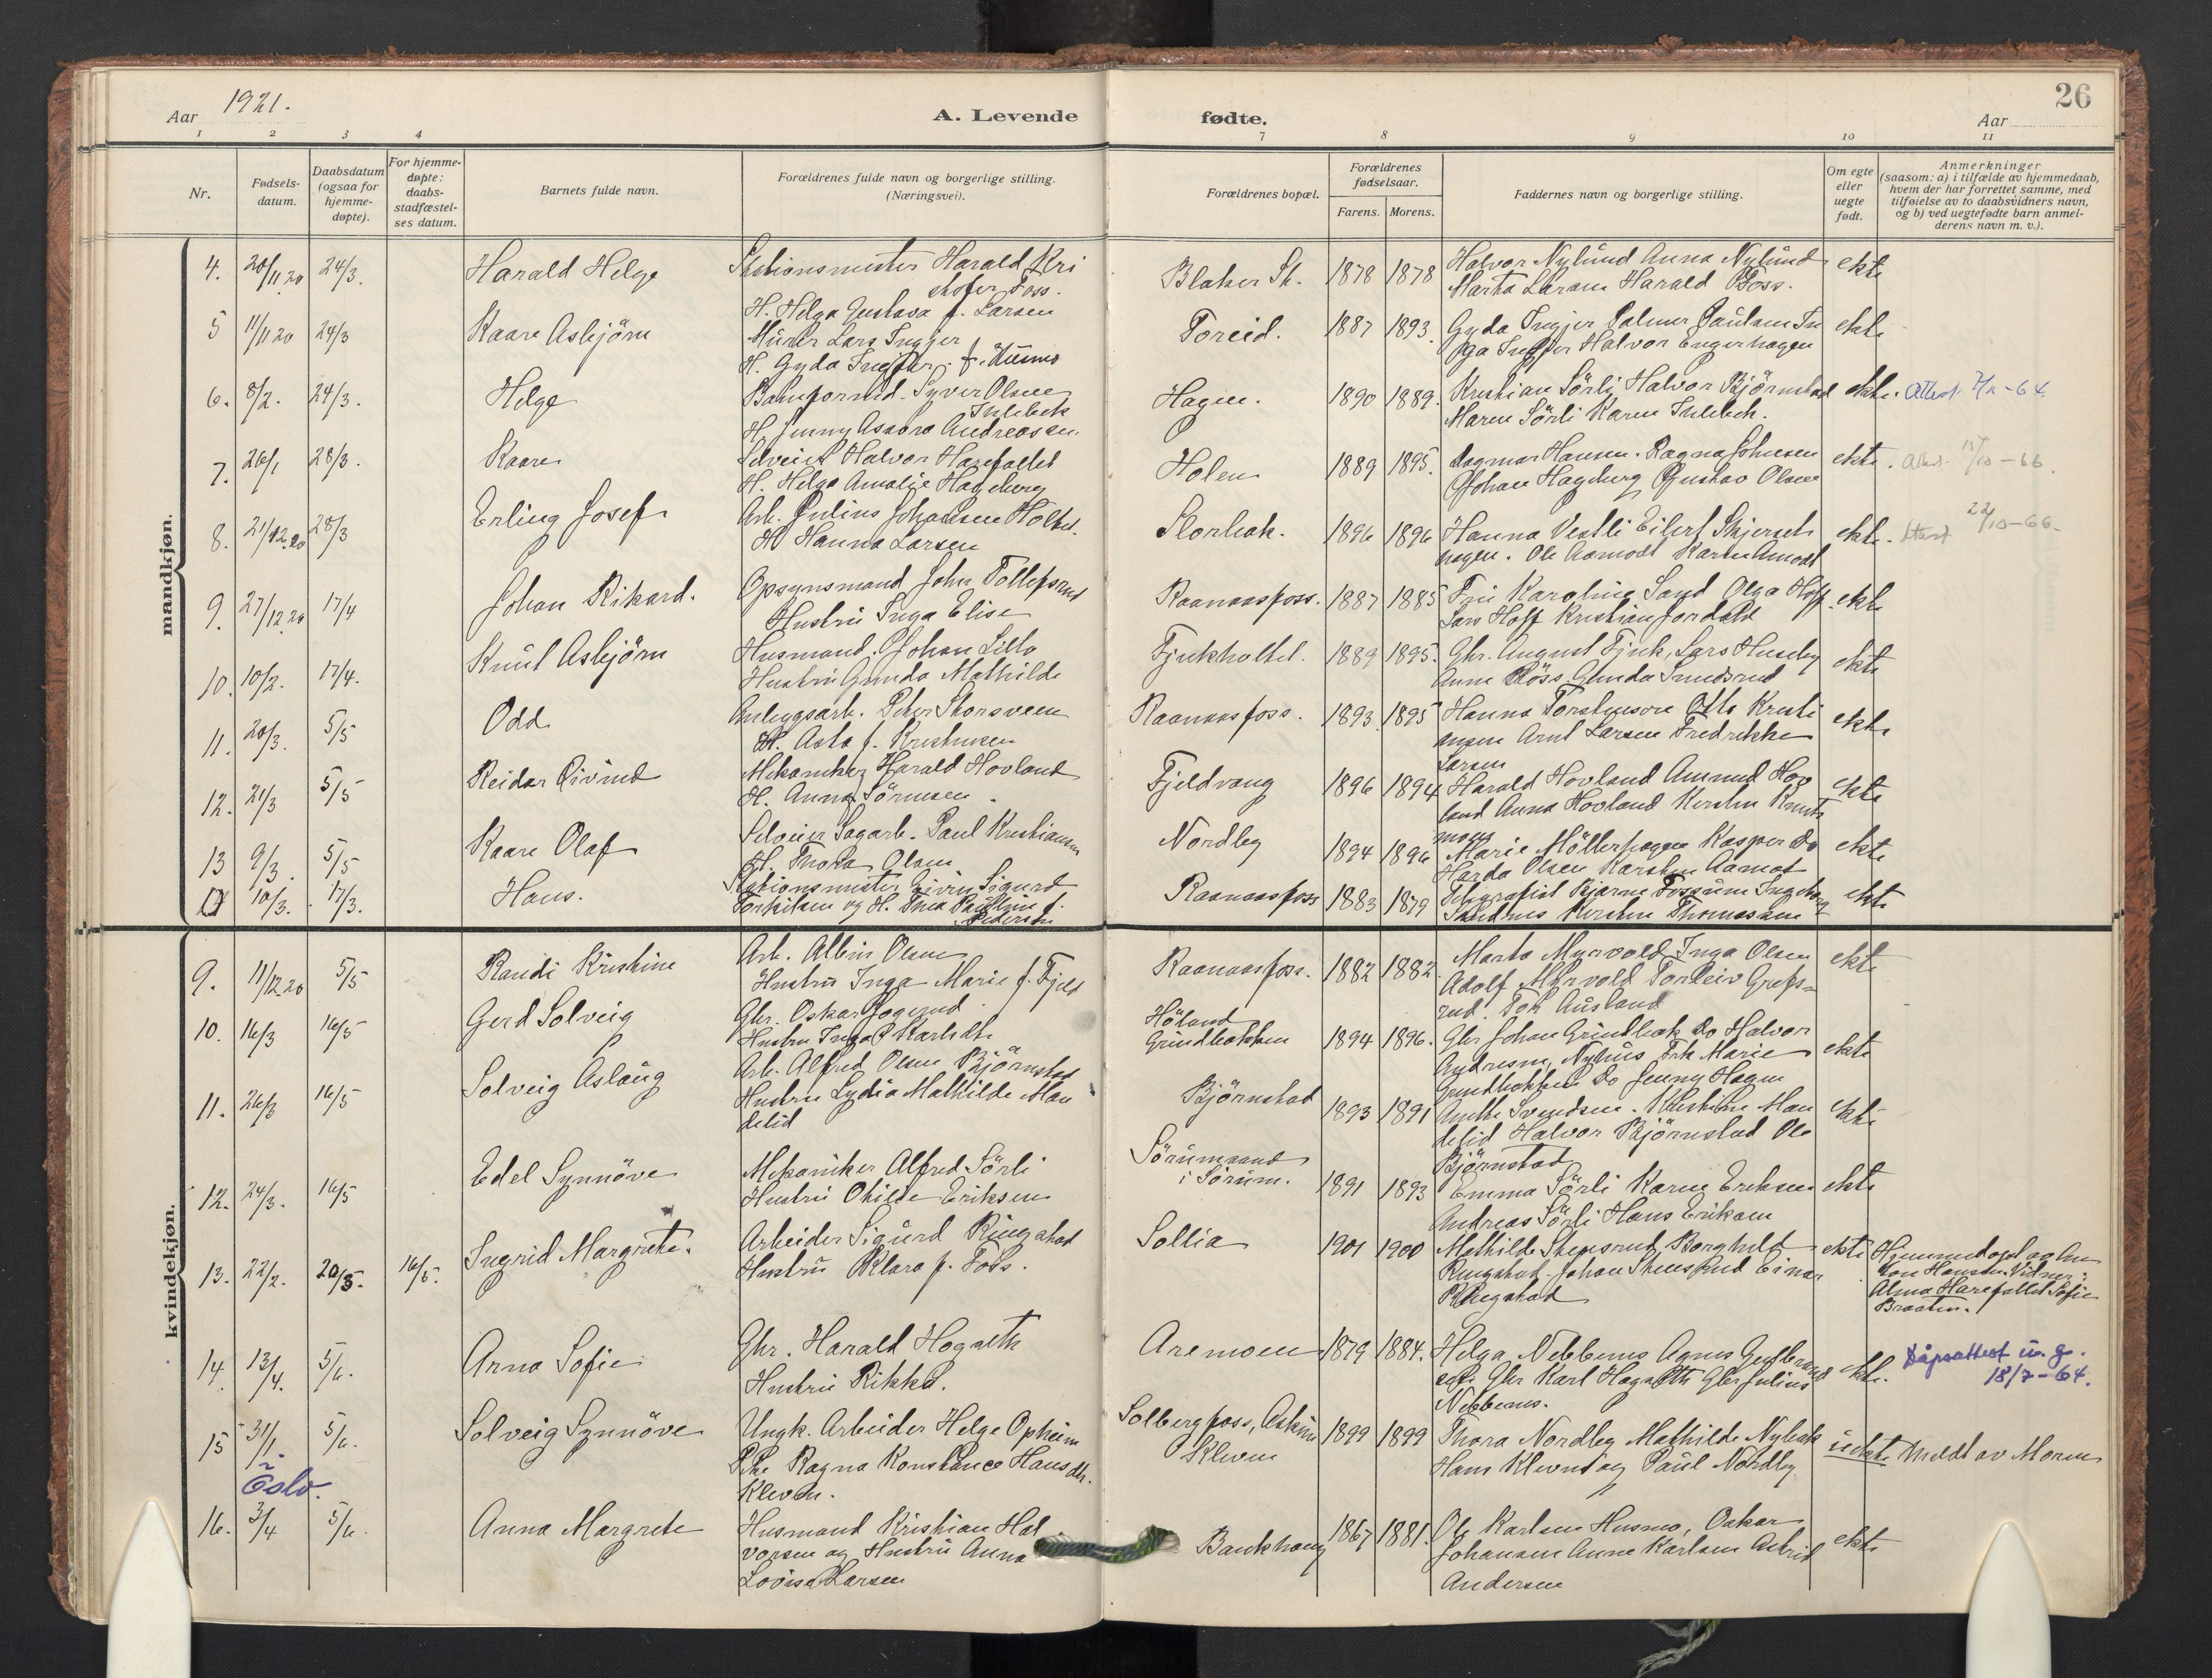 26
Aar 1921.
A. Levende fødte.
Aar
1 2 3 4 7 8 9 10 11
Nr.
Fødsels-
datum.
Daabsdatum
(ogsaa for
hjemme-
døpte).
For hjemme-
døpte:
daabs-
stadfæstel-
ses datum.
Barnets fulde navn.
Forældrenes fulde navn og borgerlige stilling.
(Næringsvei).
Forældrenes bopæl.
Forældrenes
fødselsaar.
Farens. Morens.
Faddernes navn og borgerlige stilling.
Om egte
eller
uegte
født.
Anmerkninger
(saasom: a) i tilfælde av hjemmedaab,
hvem der har forrettet samme, med
tilføielse av to daabsvidners navn,
og b) ved uegtefødte barn anmel-
derens navn m. v.).
mandkjøn.
4. 20/11 20 24/3. Harald Helge Stationsmester Harald Kri
stofer Foss.
H. Helga Gustava f. Larsen
Blaker St. 1878 1878 Halvor Nylund Anna Nylund
Marta Larsen Harald Foss. ekte
5 11/11 20 24/3 Kaare Asbjörn Murer Lars Ingjer
H. Gyda Ingjer f. Husmo
Foreid. 1887 1893. Gyda Ingjer Palmer Paulsen In
ga Ingjer Halvor Engerhagen ekte
6. 8/2. 24/3. Helge Baneformd. Syver Olsen
H. Jenny Assora Andreassen.
Hagen. 1890 1889. Kristian Sörli Halvor Björnstad
Maren Sörli Karen ekte. Attest 64
7. 26/1 28/3. Kaare Selveier Halvor Harefallet
H. Helga Amalie Hageberg
Holen 1889 1895. Dagmar Hansen. Ragna Johnsen
Johan Hagberg Gustav Olsen ekte. Attest. 15/10-66.
8. 21/12 20 28/3 Erling Josef Arb. Julius Johansen
H. Hanna Larsen
1896 1896 Hanna Vestli Eilert
hagen. Ole Aamodt Karen Amodt ekte. Attest 22/10-66.
9. 27/12 20 17/4 Johan Rikard. Opsynsmand John Tollefsrud
Hustru Inga Elise
Raanaasfoss. 1887 1885 Fru Karoline Sand Olga Hoff
Lars Hoff Kristian Jordahl ekte
10. 10/2. 17/4. Knut Asbjörn Husmand Johan
Hustru Gunda Mathilde
Fjukholtet. 1889 1895. Gbr. August Fjuk, Lars Huseby
Anne Röss Gunda Smedsrud ekte
11. 20/3. 5/5 Odd Anleggsarb. Peter Thorsveen
H. Asta f. Kristensen
Raanaasfoss. 1893 1895 Hanna Torstensen Otto Kristi
ansen Arnt Larsen Fredrikke
Larsen ekte
12. 21/3 5/5 Reidar Eivind Mekaniker Harald Hovland
H. Anna Sörensen
Fjeldvang 1896 1894 Harald Hovland Amund Hov
land Anna Hovland Kirsten Knuts
moen ekte
13 9/3. 5/5 Kaare Olaf Selveier Sagarb. Paul Kristiansen
H. Thora Olsen
Nordby 1894 1896 Marie Möllerhagen Kasper Do
Harda Olsen Karsten Aamot ekte
10/3. 17/3. Hans. Stationsmester Eivin Sigurd
Torkilsen og H. Thea Pauline f.
Pedersen
Raanaasfoss 1883 1879 Telegrafist Bjarne Fossum Ingeborg
Kirsten Thomassen ekte
kvindekjøn.
9. 11/12 20 5/5 Randi Kristine Arb. Albin Olsen
Hustru Inga Marie f. Fjeld
Raanaasfoss. 1882 1882. Marta Myrvold Inga Olsen
Adolf Myrvold Torleiv Grefs-
rud. Tor Ausland ekte
10. 16/3 16/5 Gerd Solveig Gbr. Oskar Fogerud
Hustru Inga
Höland
Grindbakken 1894 1896. Gbr Johan Grindbak Do Halvor
Andresen, Nyhus Frk Marie
Grindbakken Do Jenny Hagen ekte
11. 26/3 16/5 Solveig Aslaug Arb. Alfred Olsen Björnstad
Hustru Lydia Mathilde Man
delid
Björnstad 1893 1891 Anette Svendsen. Kristine Man
delid Halvor Björnstad Ole
Björnstad ekte
12. 24/3. 16/5 Edel Synnöve Mekaniker Alfred Sörli
Hustru Otilie Eriksen
Sörumsand
i Sörum. 1891 1893 Emma Sörli Karen Eriksen
Andreas Sörli Hans Eriksen ekte
13. 22/2. 20/3. 16/5. Ingrid Margrete. Arbeider Sigurd Ringstad
Hustru Klara f. Foss.
Sollia 1901 1900 Mathilde Stensrud Borghild
Ringstad. Johan Stensrud Einar
Ringstad ekte Hjemmedöpt av An
ton Hansen. Vidner:
Alma Harefallet Sofie
Braaten.
14. 13/4. 5/6. Anna Sofie Gbr. Harald Hogseth
Hustru Rikka.
Aremoen 1879 1884. Helga Nebbenes Agnes Gulbrand
Gbr Karl Hogseth Gbr Julius
Nebbenes. ekte. Dåpsattest u. g.
18/7-64.
15 31/1. 5/6. Solveig Synnöve Ungk. Arbeider Helge Opheim
Pike Ragna Konstance Hansdtr.
Kleven.
Oslo.
Solbergfoss, Askim
Kleven 1899 1899 Thora Nordby Mathilde Nybak
Hans Kleven og Paul Nordby uekte Meldt av Moren
16. 3/4 5/6. Anna Margrete Husmand Kristian Hal
vorsen og Hustru Anna
Lovise Larsen
Bankhaug 1867 1881. Ole Karlsen Husmo, Oskar
Johansen Anne Karlsen Astrid
Andersen ekte